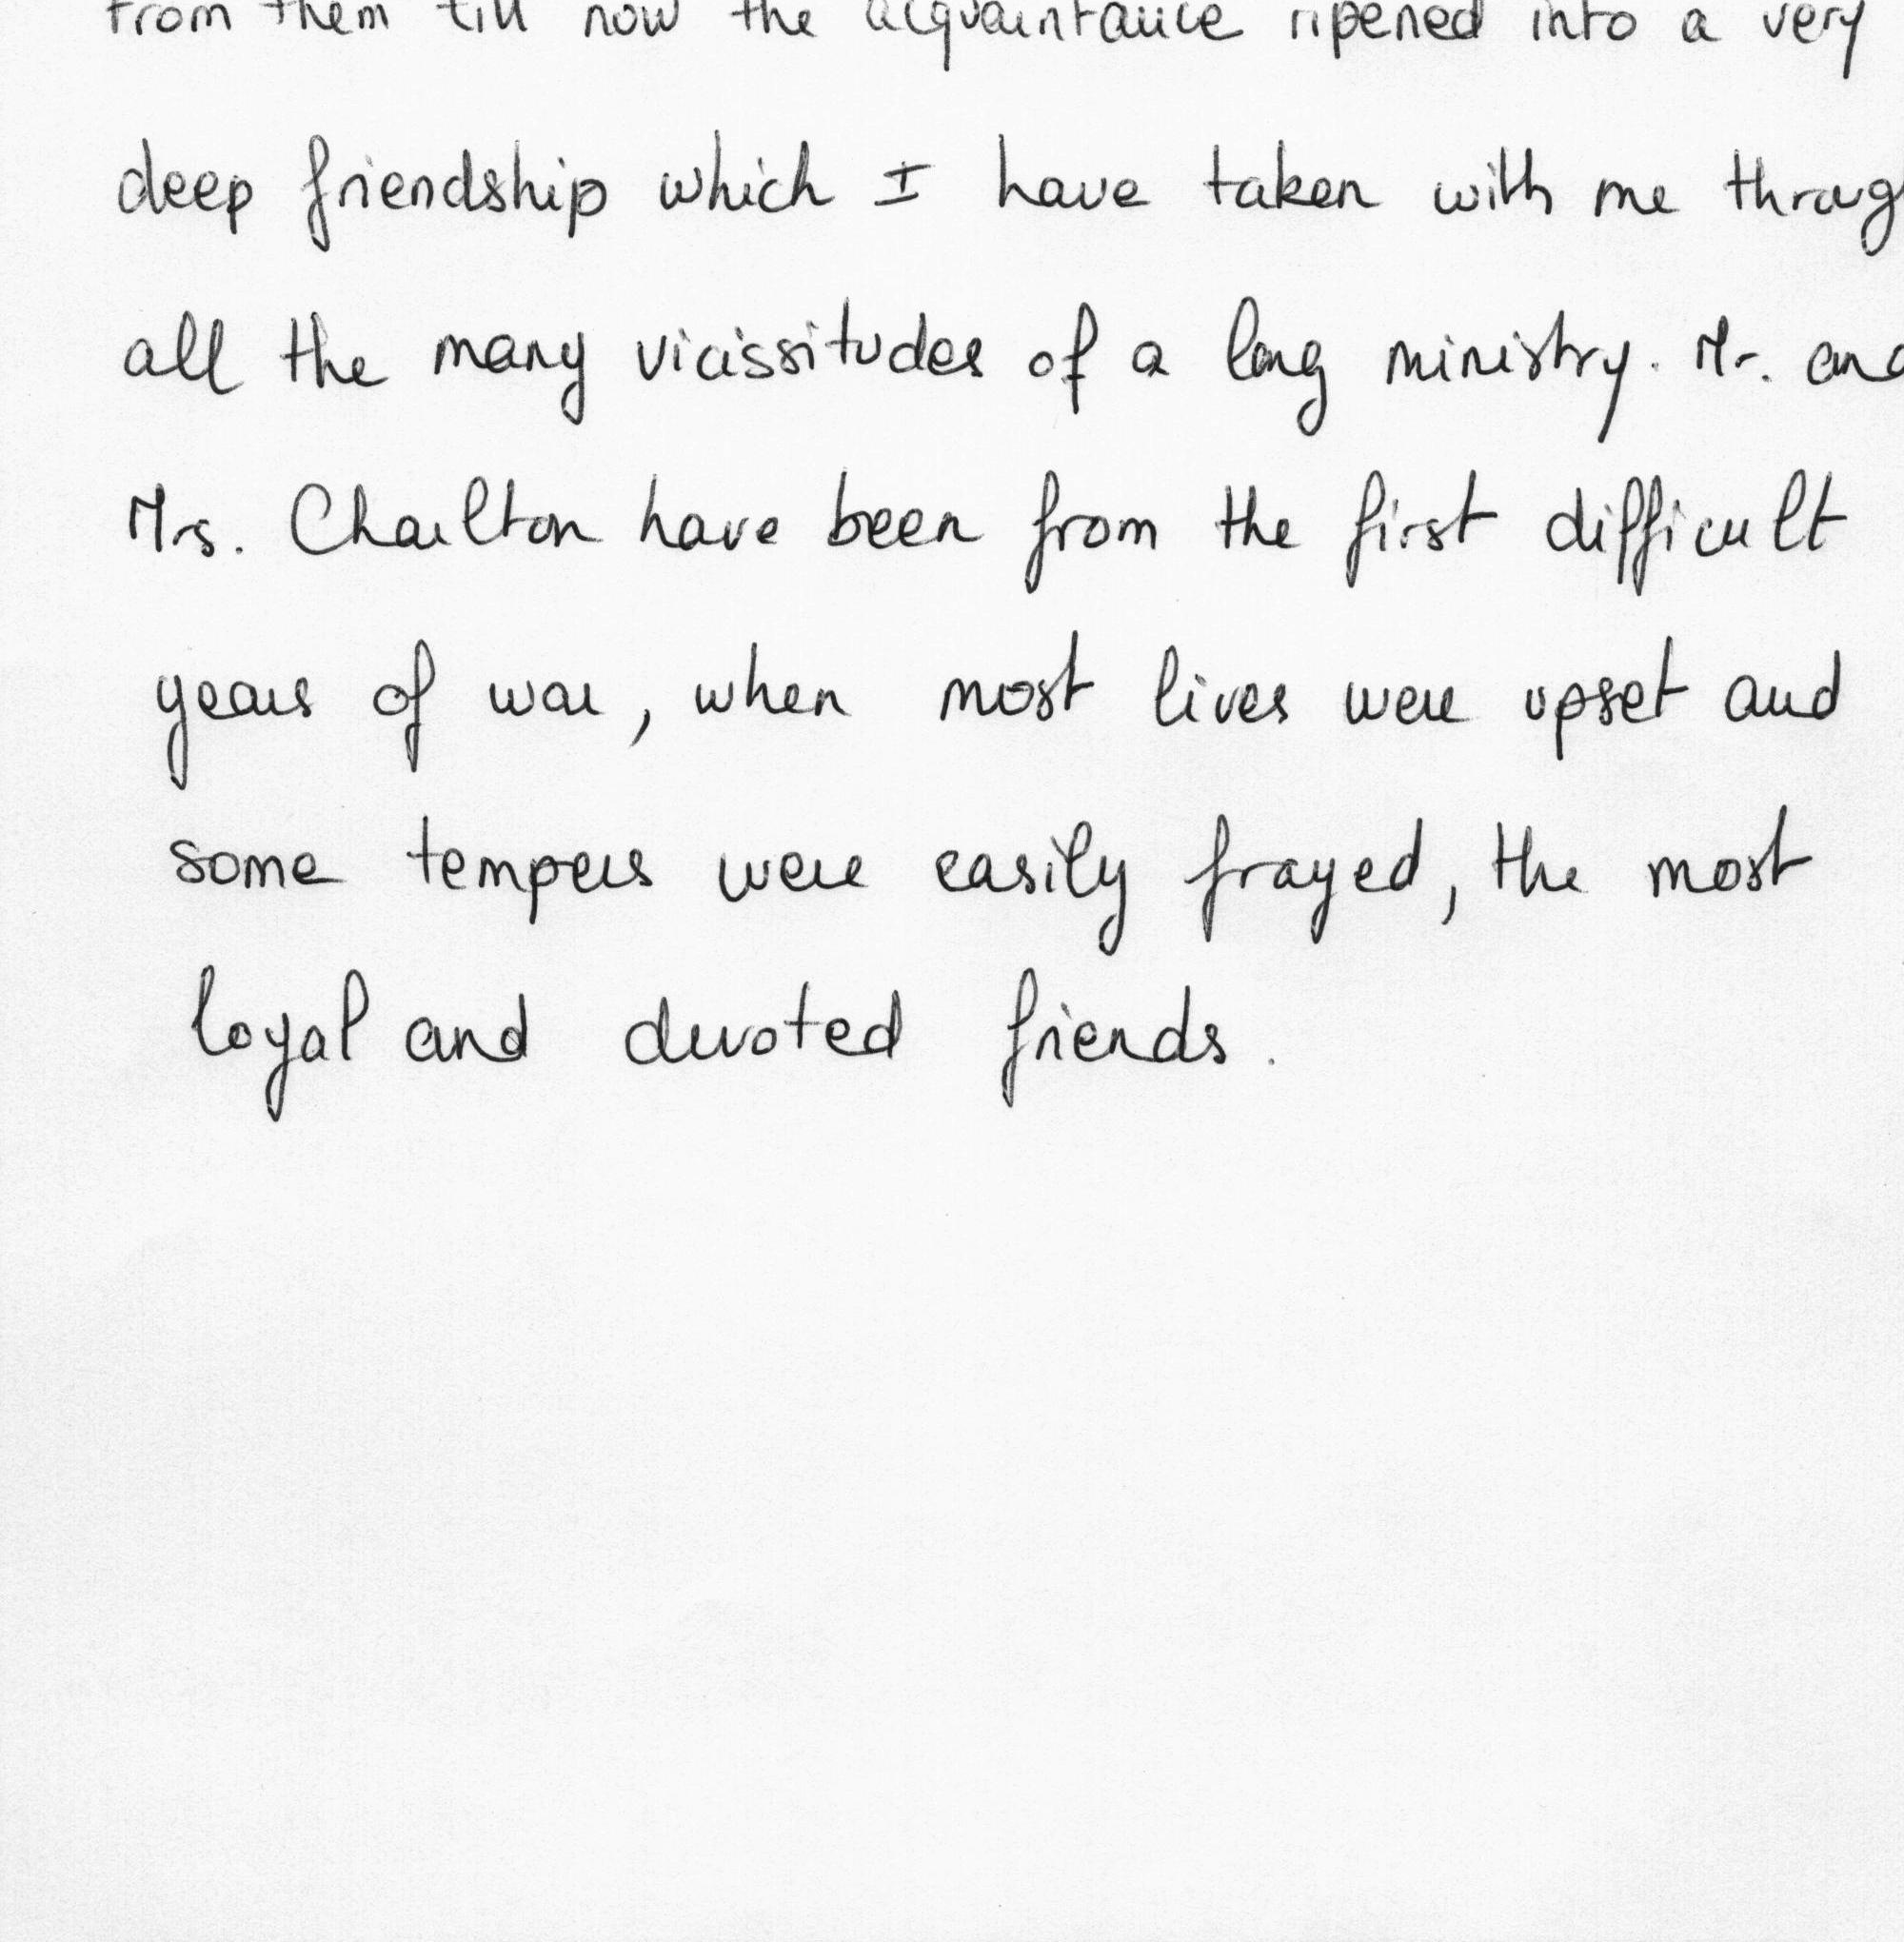 From them till now the acquaintance ripened into a very
deep friendship which I have taken with me throug
all the many vicissitudes of a long ministry. Mr. and
Mrs. Charlton have been from the first difficult
years of war, when most lives were upset and
some tempers were easily frayed, the most
loyal and devoted friends.